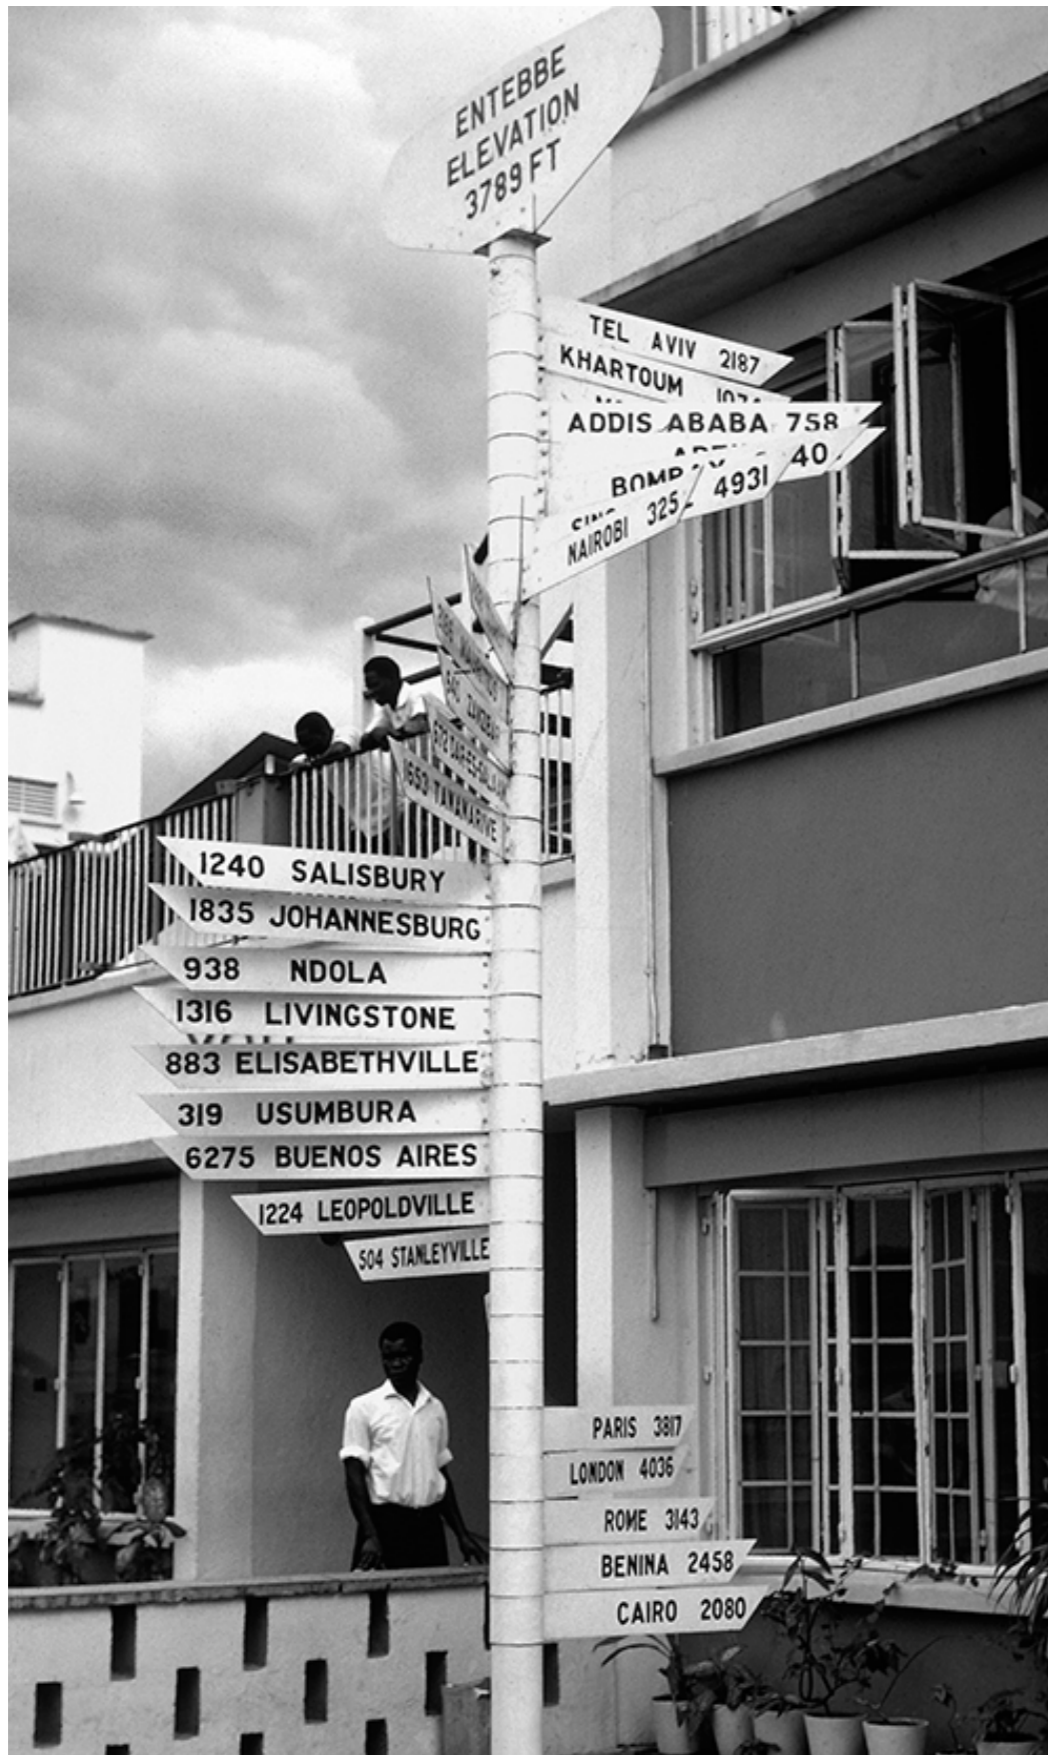 ENTEBBE
ELEVATION
3789 FT
TEL AVIV 2187
KHARTOUM
ADDIS ABABA 758
40
BOMBAY
4931
NAIROBI 325
ZANZIBAR
672 DAR-ES-SALAAM
1653 TANANARIVE
1240 SALISBURY
1835 JOHANNESBURG
938 NDOLA
1316 LIVINGSTONE
883 ELISABETHVILLE
319 USUMBURA
6275 BUENOS AIRES
1224 LEOPOLDVILLE
504 STANLEYVILLE
PARIS 3817
LONDON 4036
ROME 3143
BENINA 2458
CAIRO 2080